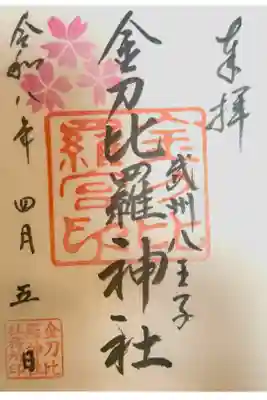 奉拝
武州八王子
金刀比羅神社
令和八年 四月 五日
金刀比羅宮印